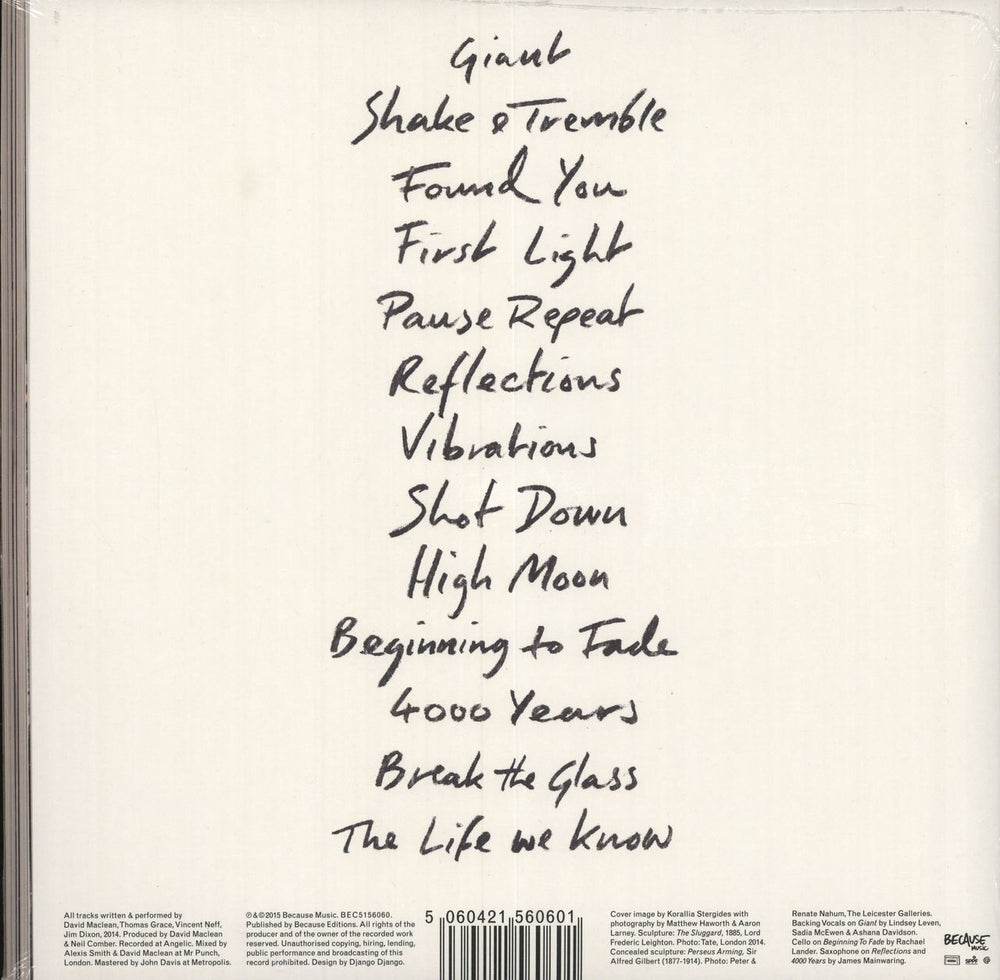 Giant
Shake & Tremble
Found You
First Light
Pause Repeat
Reflections
Vibrations
Shot Down
High Moon
Beginning to Fade
4000 Years
Break the Glass
The Life we know
All tracks written & performed by
David Maclean, Thomas Grace, Vincent Neff,
Jim Dixon, 2014. Produced by David Maclean
& Neil Comber. Recorded at Angelic. Mixed by
Alexis Smith & David Maclean at Mr Punch,
London. Mastered by John Davis at Metropolis.
℗&©2015 Because Music. BEC5156060.
Published by Because Editions. All rights of the
producer and of the owner of the recorded work
reserved. Unauthorised copying, hiring, lending,
public performance and broadcasting of this
record prohibited. Design by Django Django.
5 060421 560601
Cover image by Korallia Stergides with
photography by Matthew Haworth & Aaron
Larney. Sculpture: The Sluggard, 1885, Lord
Frederic Leighton. Photo: Tate, London 2014.
Concealed sculpture: Perseus Arming, Sir
Alfred Gilbert (1877-1914). Photo: Peter &
Renate Nahum, The Leicester Galleries.
Backing Vocals on Giant by Lindsey Leven,
Sadia McEwen & Ashana Davidson.
Cello on Beginning To Fade by Rachael
Lander. Saxophone on Reflections and
4000 Years by James Mainwaring.
BECAUSE
MUSIC